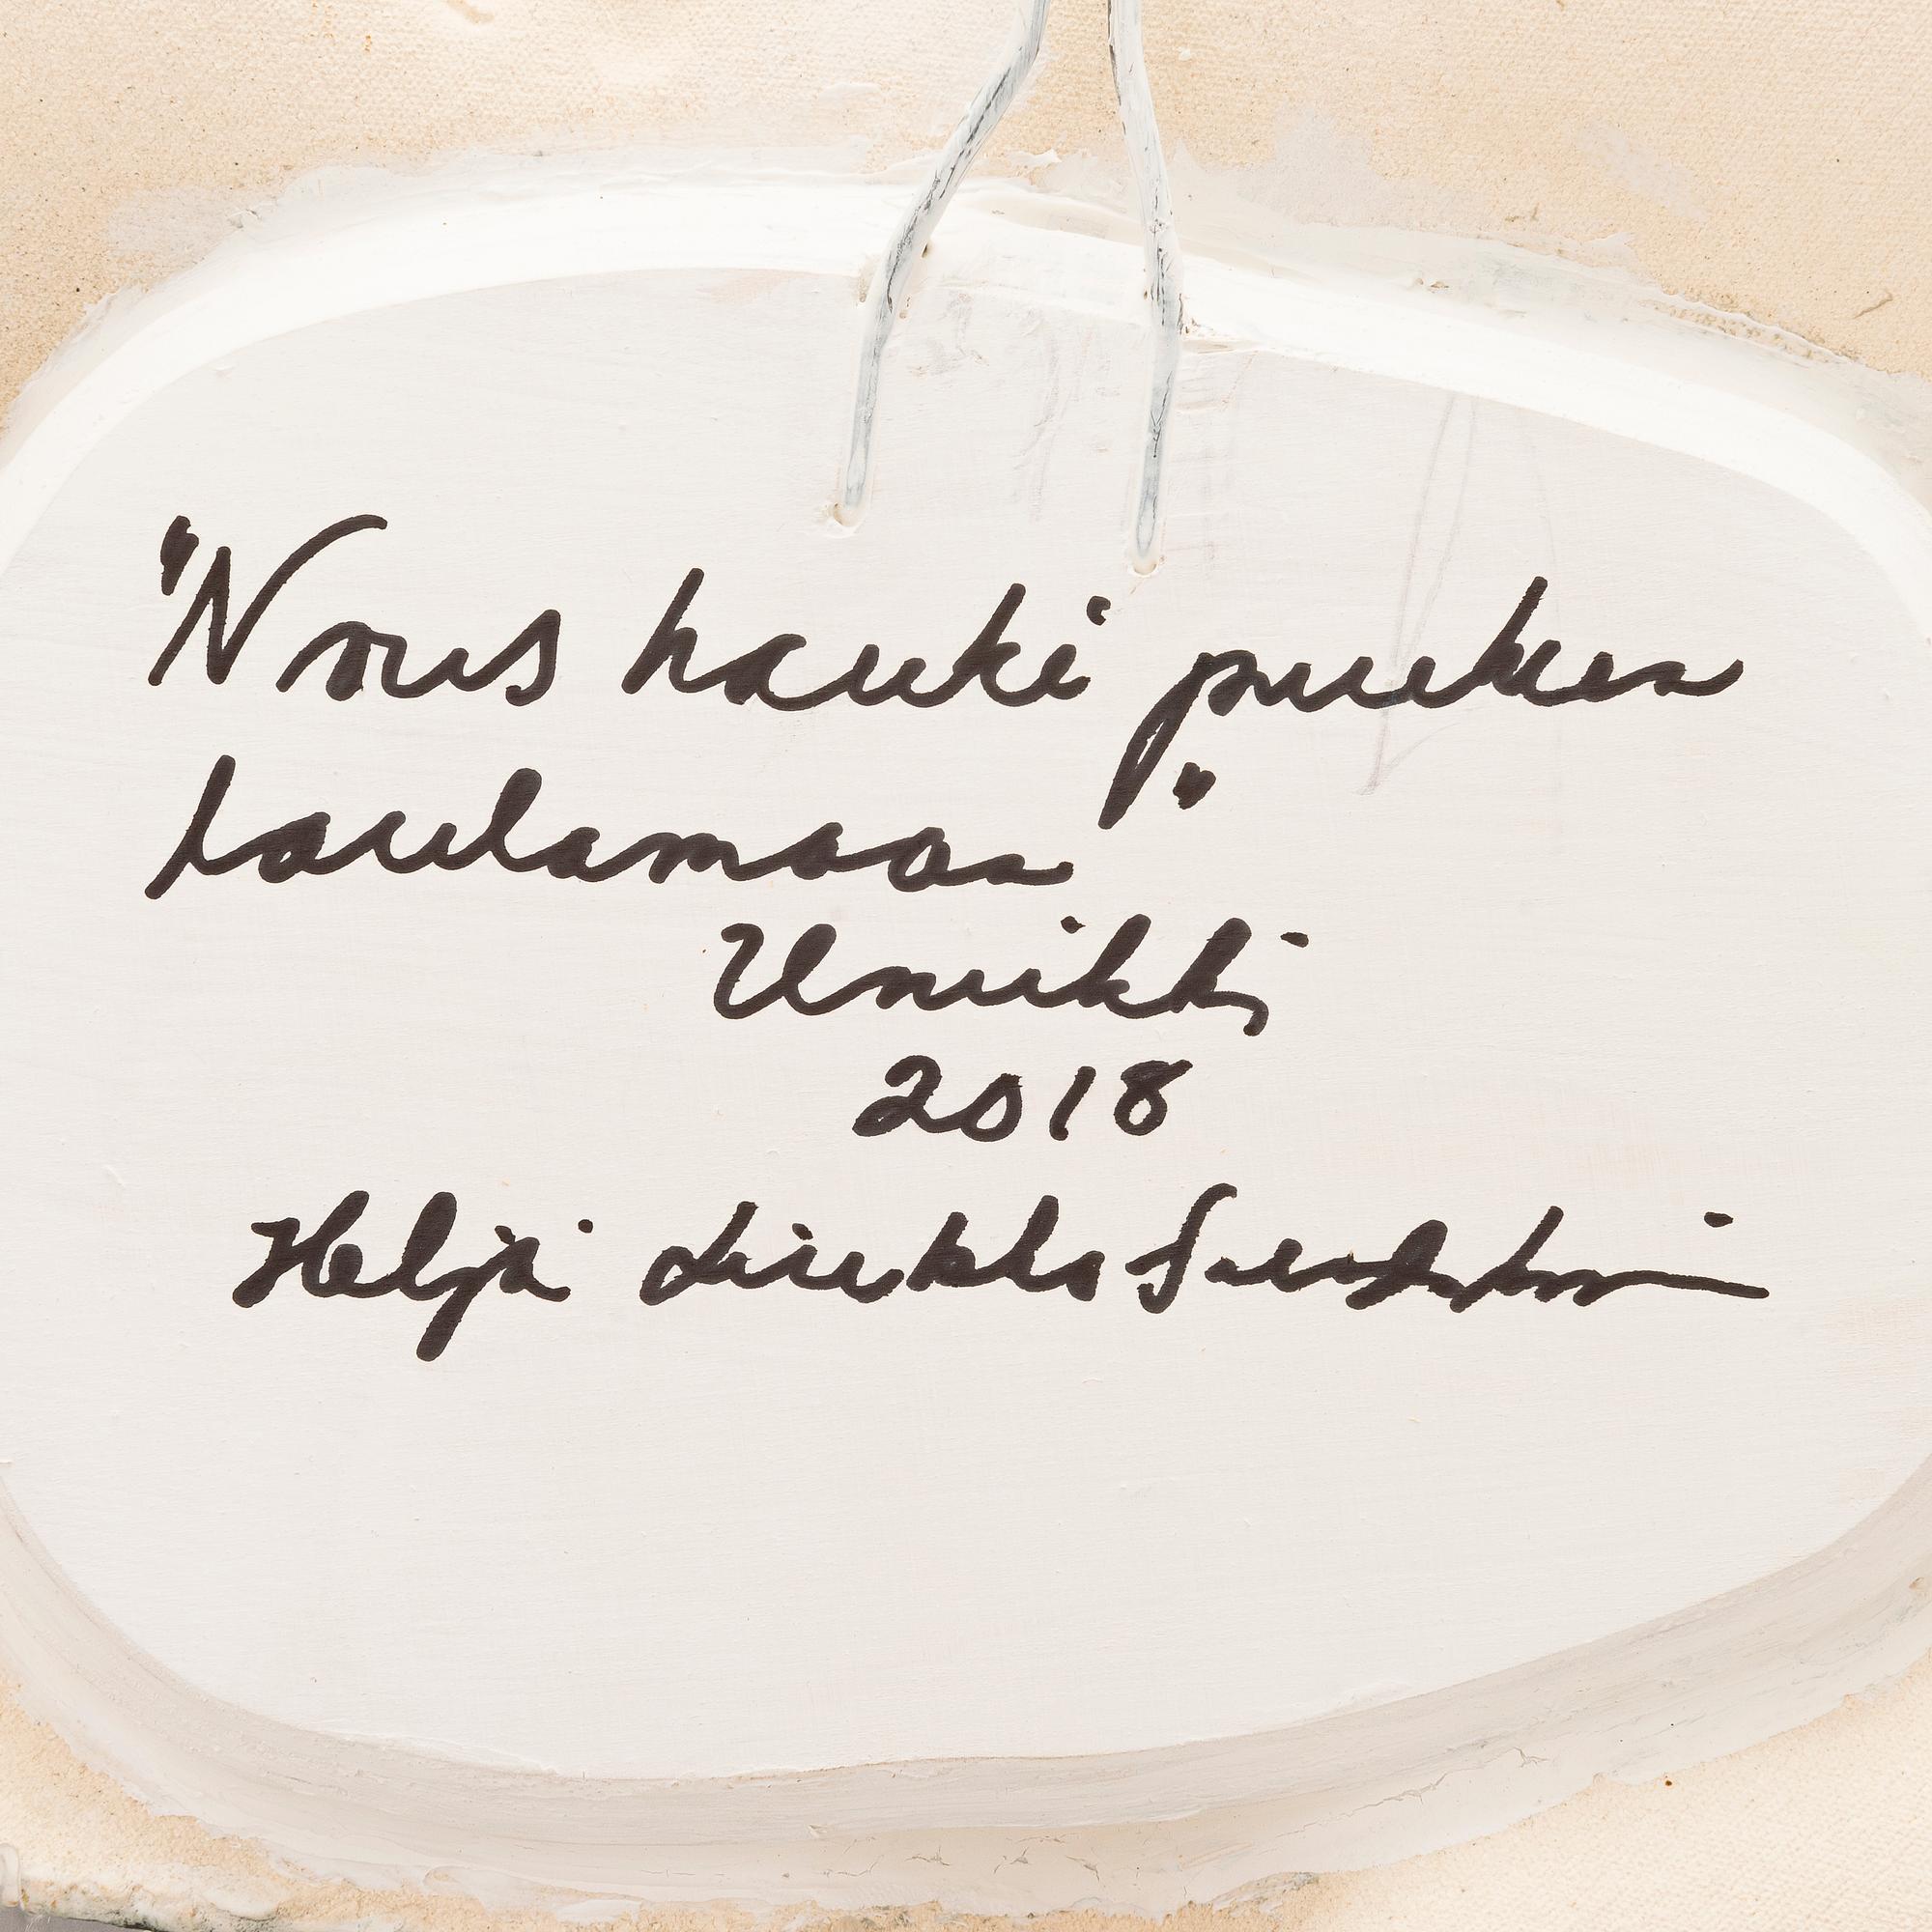 "Nous hauki puuhun
laulamaan"
Uniikki
2018
Heljä Liukko-Sundström